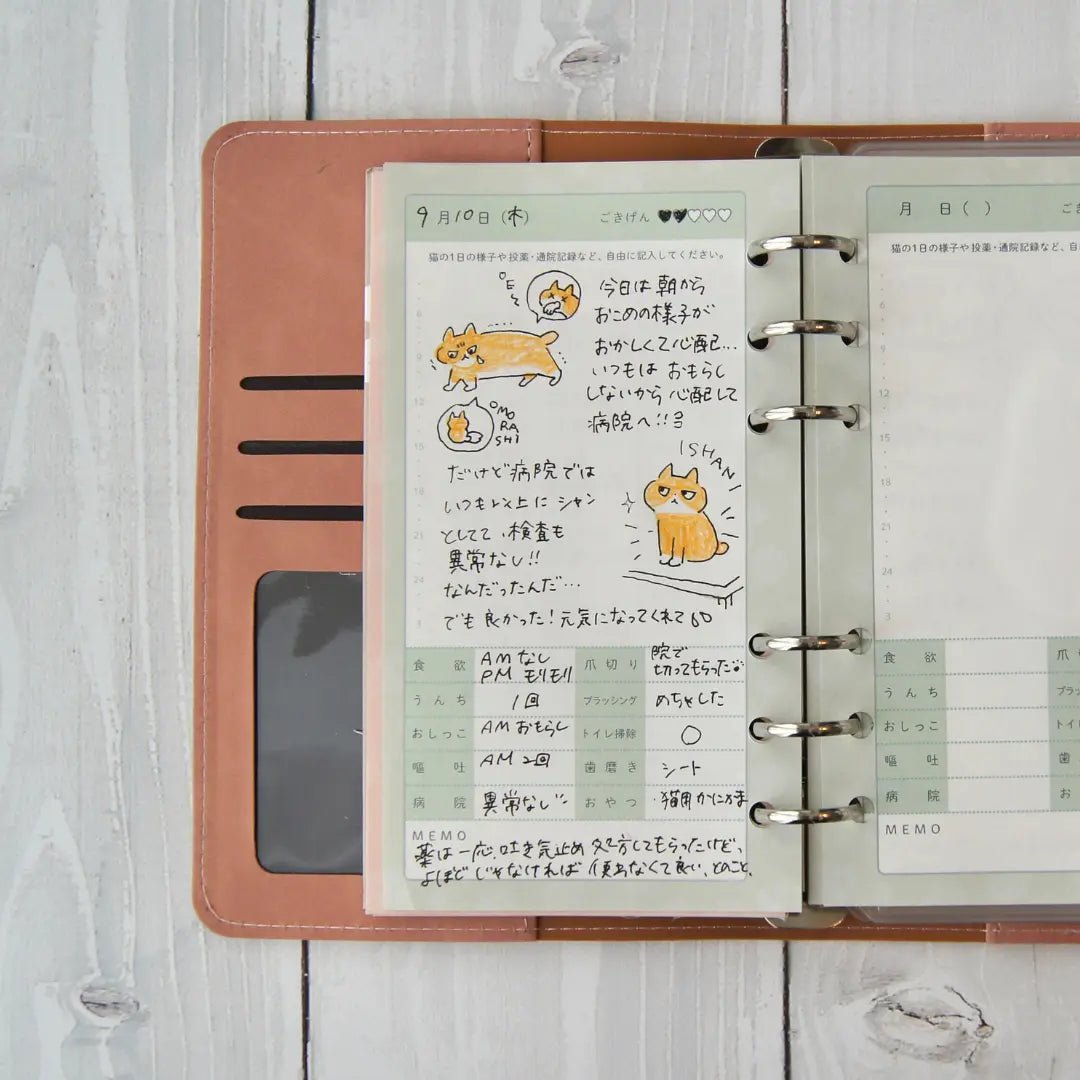 9月10日(木) ごきげん ♥♥♡♡♡
猫の1日の様子や投薬・通院記録など、自由に記入してください。
今日は朝から
おこめの様子が
おかしくて心配…
いつもは おもらし
しないから 心配して
病院へ!!
MO
RA
SHI
ISHAN
だけど病院では
いつも以上に シャン
としてて、検査も
異常なし!!
なんだったんだ…
でも 良かった!元気になってくれて
6
12
15
18
21
24
3
食欲 AM なし
PM モリモリ
爪切り 院で
切ってもらった
うんち 1回 ブラッシング めちゃした
おしっこ AM おもらし トイレ掃除 ○
嘔吐 AM 2回 歯磨き シート
病院 異常なし おやつ ・猫用かにかま
MEMO
薬は一応、吐き気止め 処方してもらったけど、
よほど じゃなければ 使わなくて良い、とのこと。
月 日( ) ごき
猫の1日の様子や投薬・通院記録など、自
6
12
15
18
21
24
3
食欲 爪
うんち ブラッ
おしっこ トイ
嘔吐 歯
病院 お
MEMO